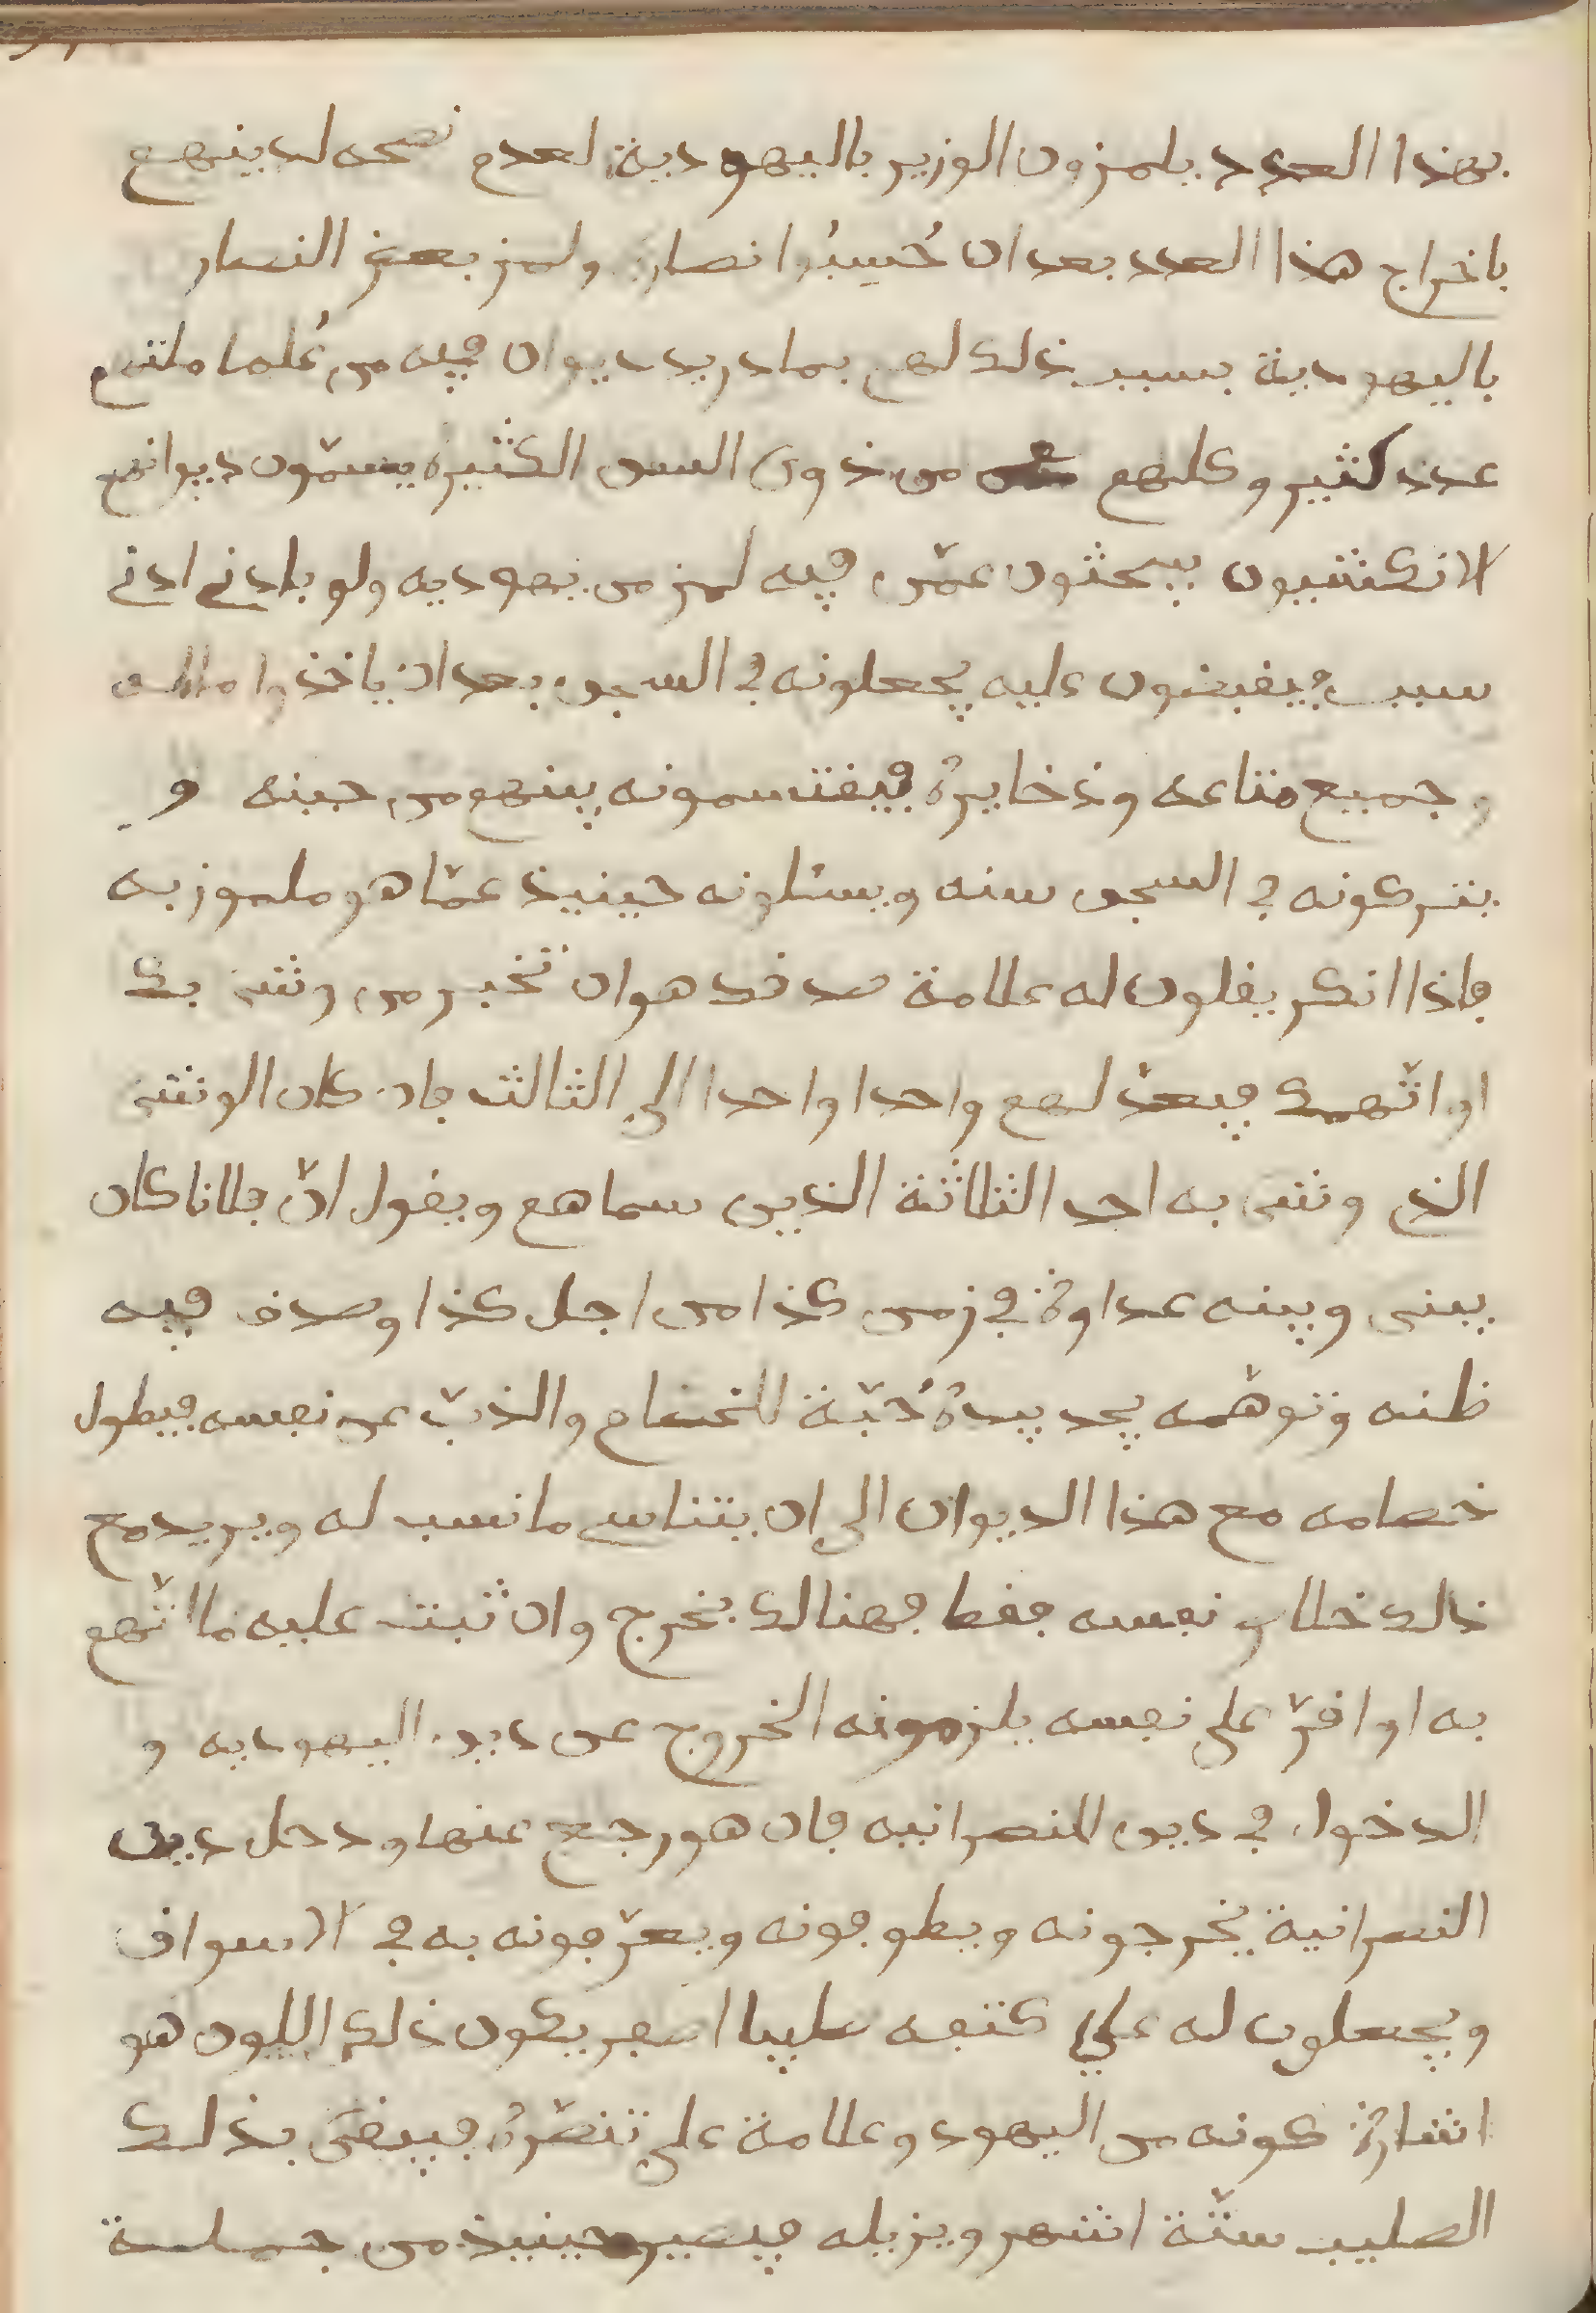 بهذا العدد يلمزون الوزير باليهودية لعدم نصحه لدينهم
باخراج هذا العدد بعد ان حُسِبُوا نصارى ولمز بعض النصار
باليهودية بسبب ذلك لهم بمادريد ديوان فيه من عُلما ملتهم
عدد كثير وكلهم من ذوي السن الكثيرة يسمّون ديوانهم
الانكشسيون يبحثون عمّن فيه لمز من يهوديه ولو بادنى ادنى
سبب فيقبضون عليه يجعلونه في السجن بعد ان ياخذوا ماله
و جميع متاعه وذخايرهُ فيقتسمونه بينهم من حينه و
يتركونه في السجن سنه ويسئلونه حينيذ عمّا هو ملموز به
فاذا انكر يقلون له علامة صدقك هو ان تخبر من وشى بك
او اتّهمك فيعدّ لهم واحدا واحدا الى الثالث فان كان الوشى
الذي وشى به احد الثلاثة الذين سماهم ويقول انّ فلانا كان
بيني وبينه عداوةٌ في زمن كذا من اجل كذا وصدق فيه
ظنه وتوهّمه يجد بيدهُ حُجّة للخصام والذبّ عن نفسه فيطول
خصامه مع هذا الديوان الى ان يتناسى ما نسب له ويريد مع
ذلك خلاص نفسه فقط فهنالك يخرج وان ثبت عليه ما اتّهم
به او اقرّ على نفسه يلزمونه الخروج عن دين اليهوديه و
الدخول في دين النصرانيه فان هو رجع عنها ودخل دين
النصرانية يخرجونه ويطوفونه ويعرّفونه به في الاسواق
ويجعلون له على كتفه صليبا اصفر يكون ذلك اللون هو
اشارةٌ كونه من اليهود وعلامة على تنصّرهُ فيبقى بذلك
الصليب ستّة اشهر ويزيله فيصير حينيذ من جملة